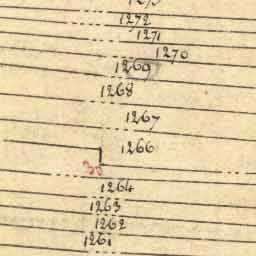 1273
1272
1271
1270
1269
1268
1267
1266
30
1264
1263
1262
1261